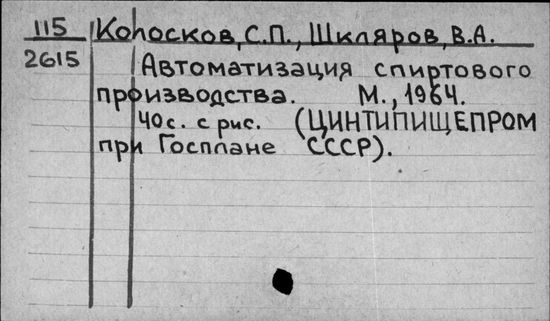 115 Колосков, С.П., Шкляров, В.А.
2615 Автоматизация спиртового
производства. М., 1964.
40с. с рис. (ЦИНТИПИЩЕПРОМ
при Госплане СССР).